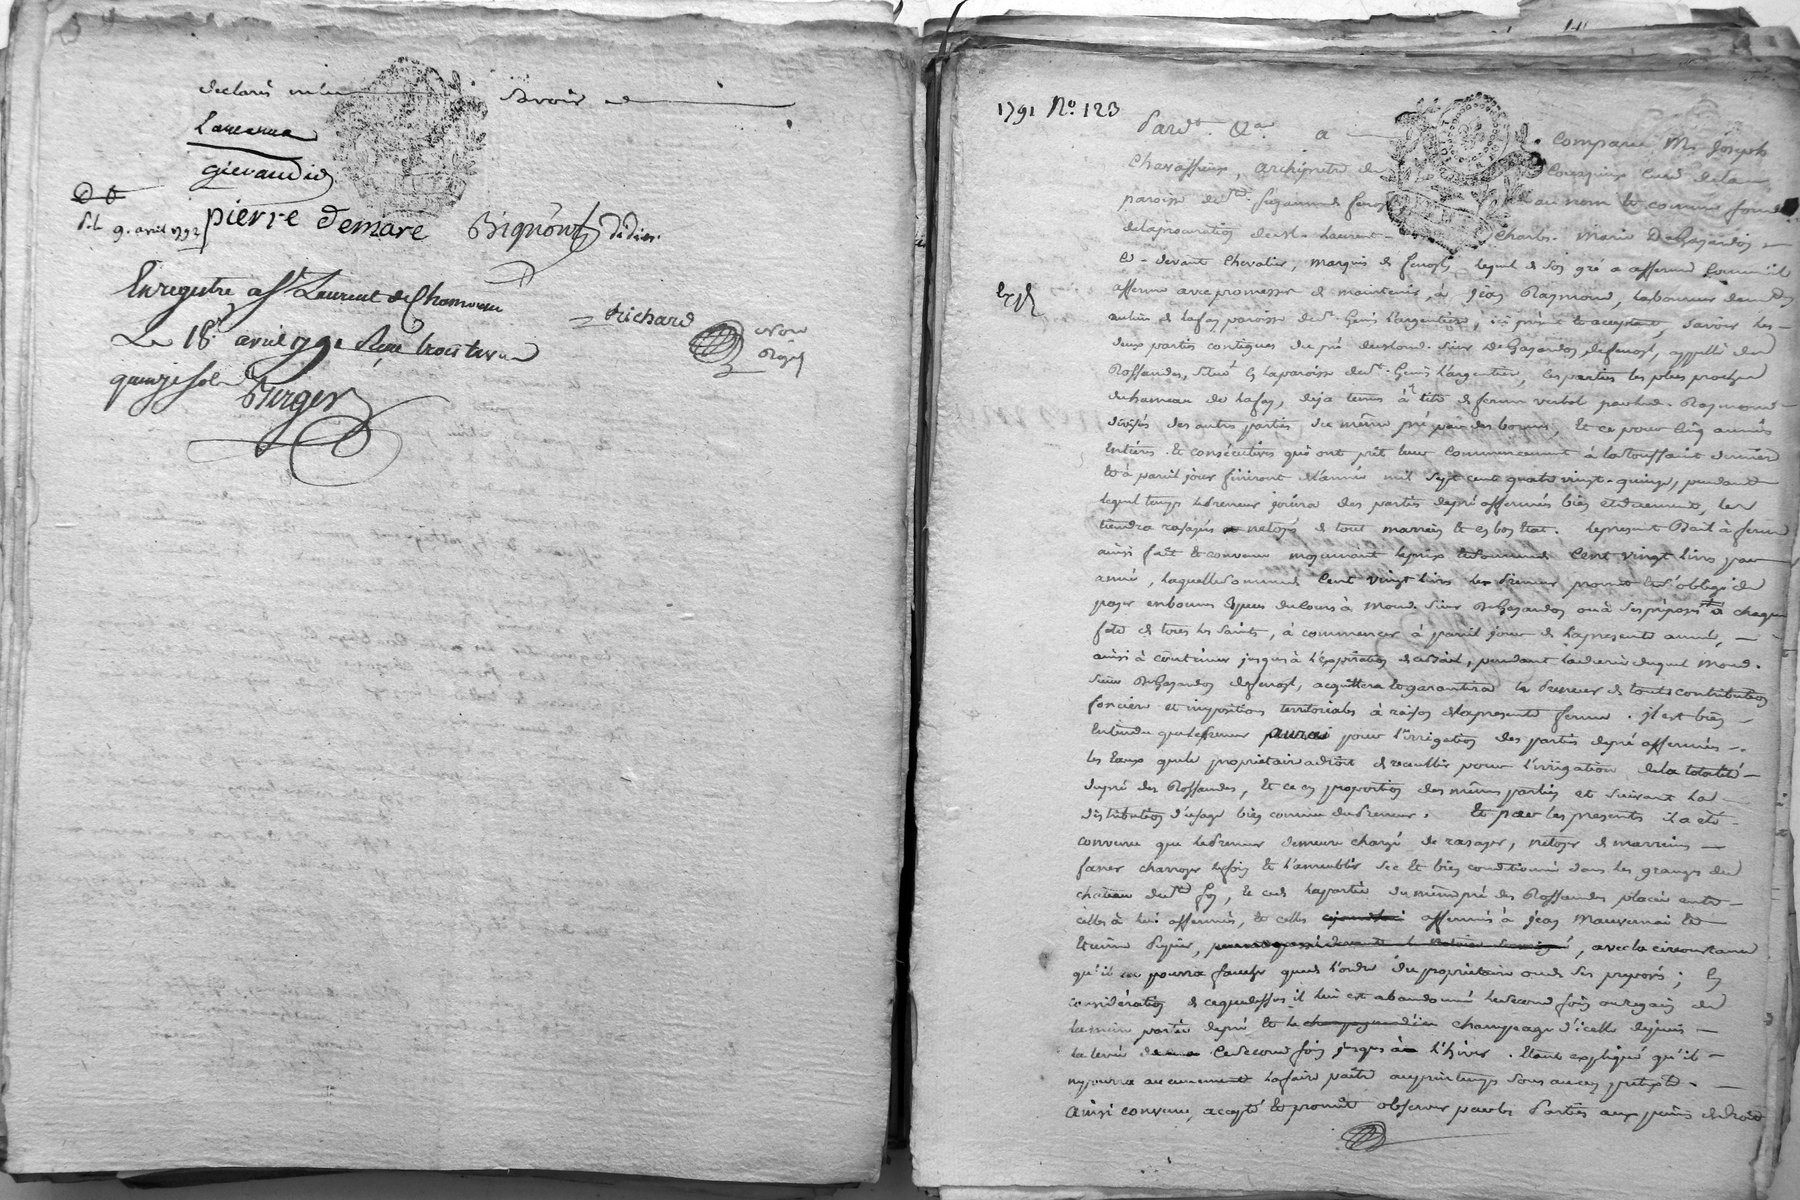 declaré
Savoir
gievaudio
9. avril 1792 pierre demare Bignond didier
Enregistré a St. Laurent de Chamousset
Richard
Le 18 avril 179 Reçu trois livres
quinze sols
Berger
1791 No. 123
Pardt. &a. a comparu Me. Joseph
Chavassieux, archiprêtre de curé de la
paroisse de fenost au nom et comme fondé
de la procuration de St. Laurent Charles Marie DeGazandon
Ci-devant Chevalier, Marquis de fenost, lequel de son gré a affermé comme il
afferme avec promesse de maintenir, à Jean Raymond, laboureur demt.
au lieu de lafay paroisse de St. Genis l'argentiere, ici présent et acceptant, Savoir les
deux parties contigues du pré dudond. Sieur DeGazandon defenost, appellé des
Rossandes, Situé en la paroisse de St. Genis l'argentier, les parties les plus proches
du hameau de lafay, deja tenus à titre de ferme verbal par led. Raymond
divisés des autres parties du même pré par des bornes, Et ce pour Cinq années
entieres et consécutives qui ont prit leur commencement à la toussaint derniere
et à pareil jour finiront de l'année mil Sept cent quatre vingt-quinze, pendant
lequel temps le preneur jouira des parties de pré affermées bien et duement, les
tiendra rasées netoyés de tout marrein et en bon Etat. Le present Bail à ferme
ainsi fait et convenu moyennant le prix et somme de Cent vingt livres par
année, laquelle somme de Cent vingt livres le preneur promet et s'oblige de
payer en bonnes Especes du cours à mond. Sieur DeGazandon ou à ses préposés à chaque
fete de tous les Saints, à commencer à pareil jour de la presente année,
ainsi à continuer jusques à l'expiration de ce bail, pendant la durée duquel mond.
Sieur DeGazandon defenost, acquittera et garantira le preneur de toute contribution
fonciere et impositions territoriales à raison de la presente ferme. Il est bien
Entendu que le preneur aura pour l'irrigation des parties de pré affermées
les Eaux que le proprietaire a droit de recueillir pour l'irrigation de la totalité
du pré des Rossandes, Et ce en proportion des mêmes parties et suivant la
distribution d'usage bien connue du Preneur. Et par les presentes il a été
convenu que le preneur demeure chargé de raser, netoyer de marreins
faner charroyer le foin et l'ameublir sec et bien conditionné dans les granges du
chateau du fay, le cas la partie du même pré des Rossandes placée entre
celles à lui affermées, et celles affermées à Jean Mauvernai et
Etienne Pupier, avec la circonstance
qu'il ne pourra faucher que de l'ordre du proprietaire ou de ses préposés; En
considération de ce que dessus il lui est abandonné le second foin ou regain de
la même partie de pré Et le champeage d'icelle depuis
la levée de ce second foin jusques à l'hiver. Etant expliqué qu'il
n'y pourra aucunement la faire paitre au printemps sous aucun pretexte.
Ainsi convenu, accepté et promit observer par les Parties aux peines de droit